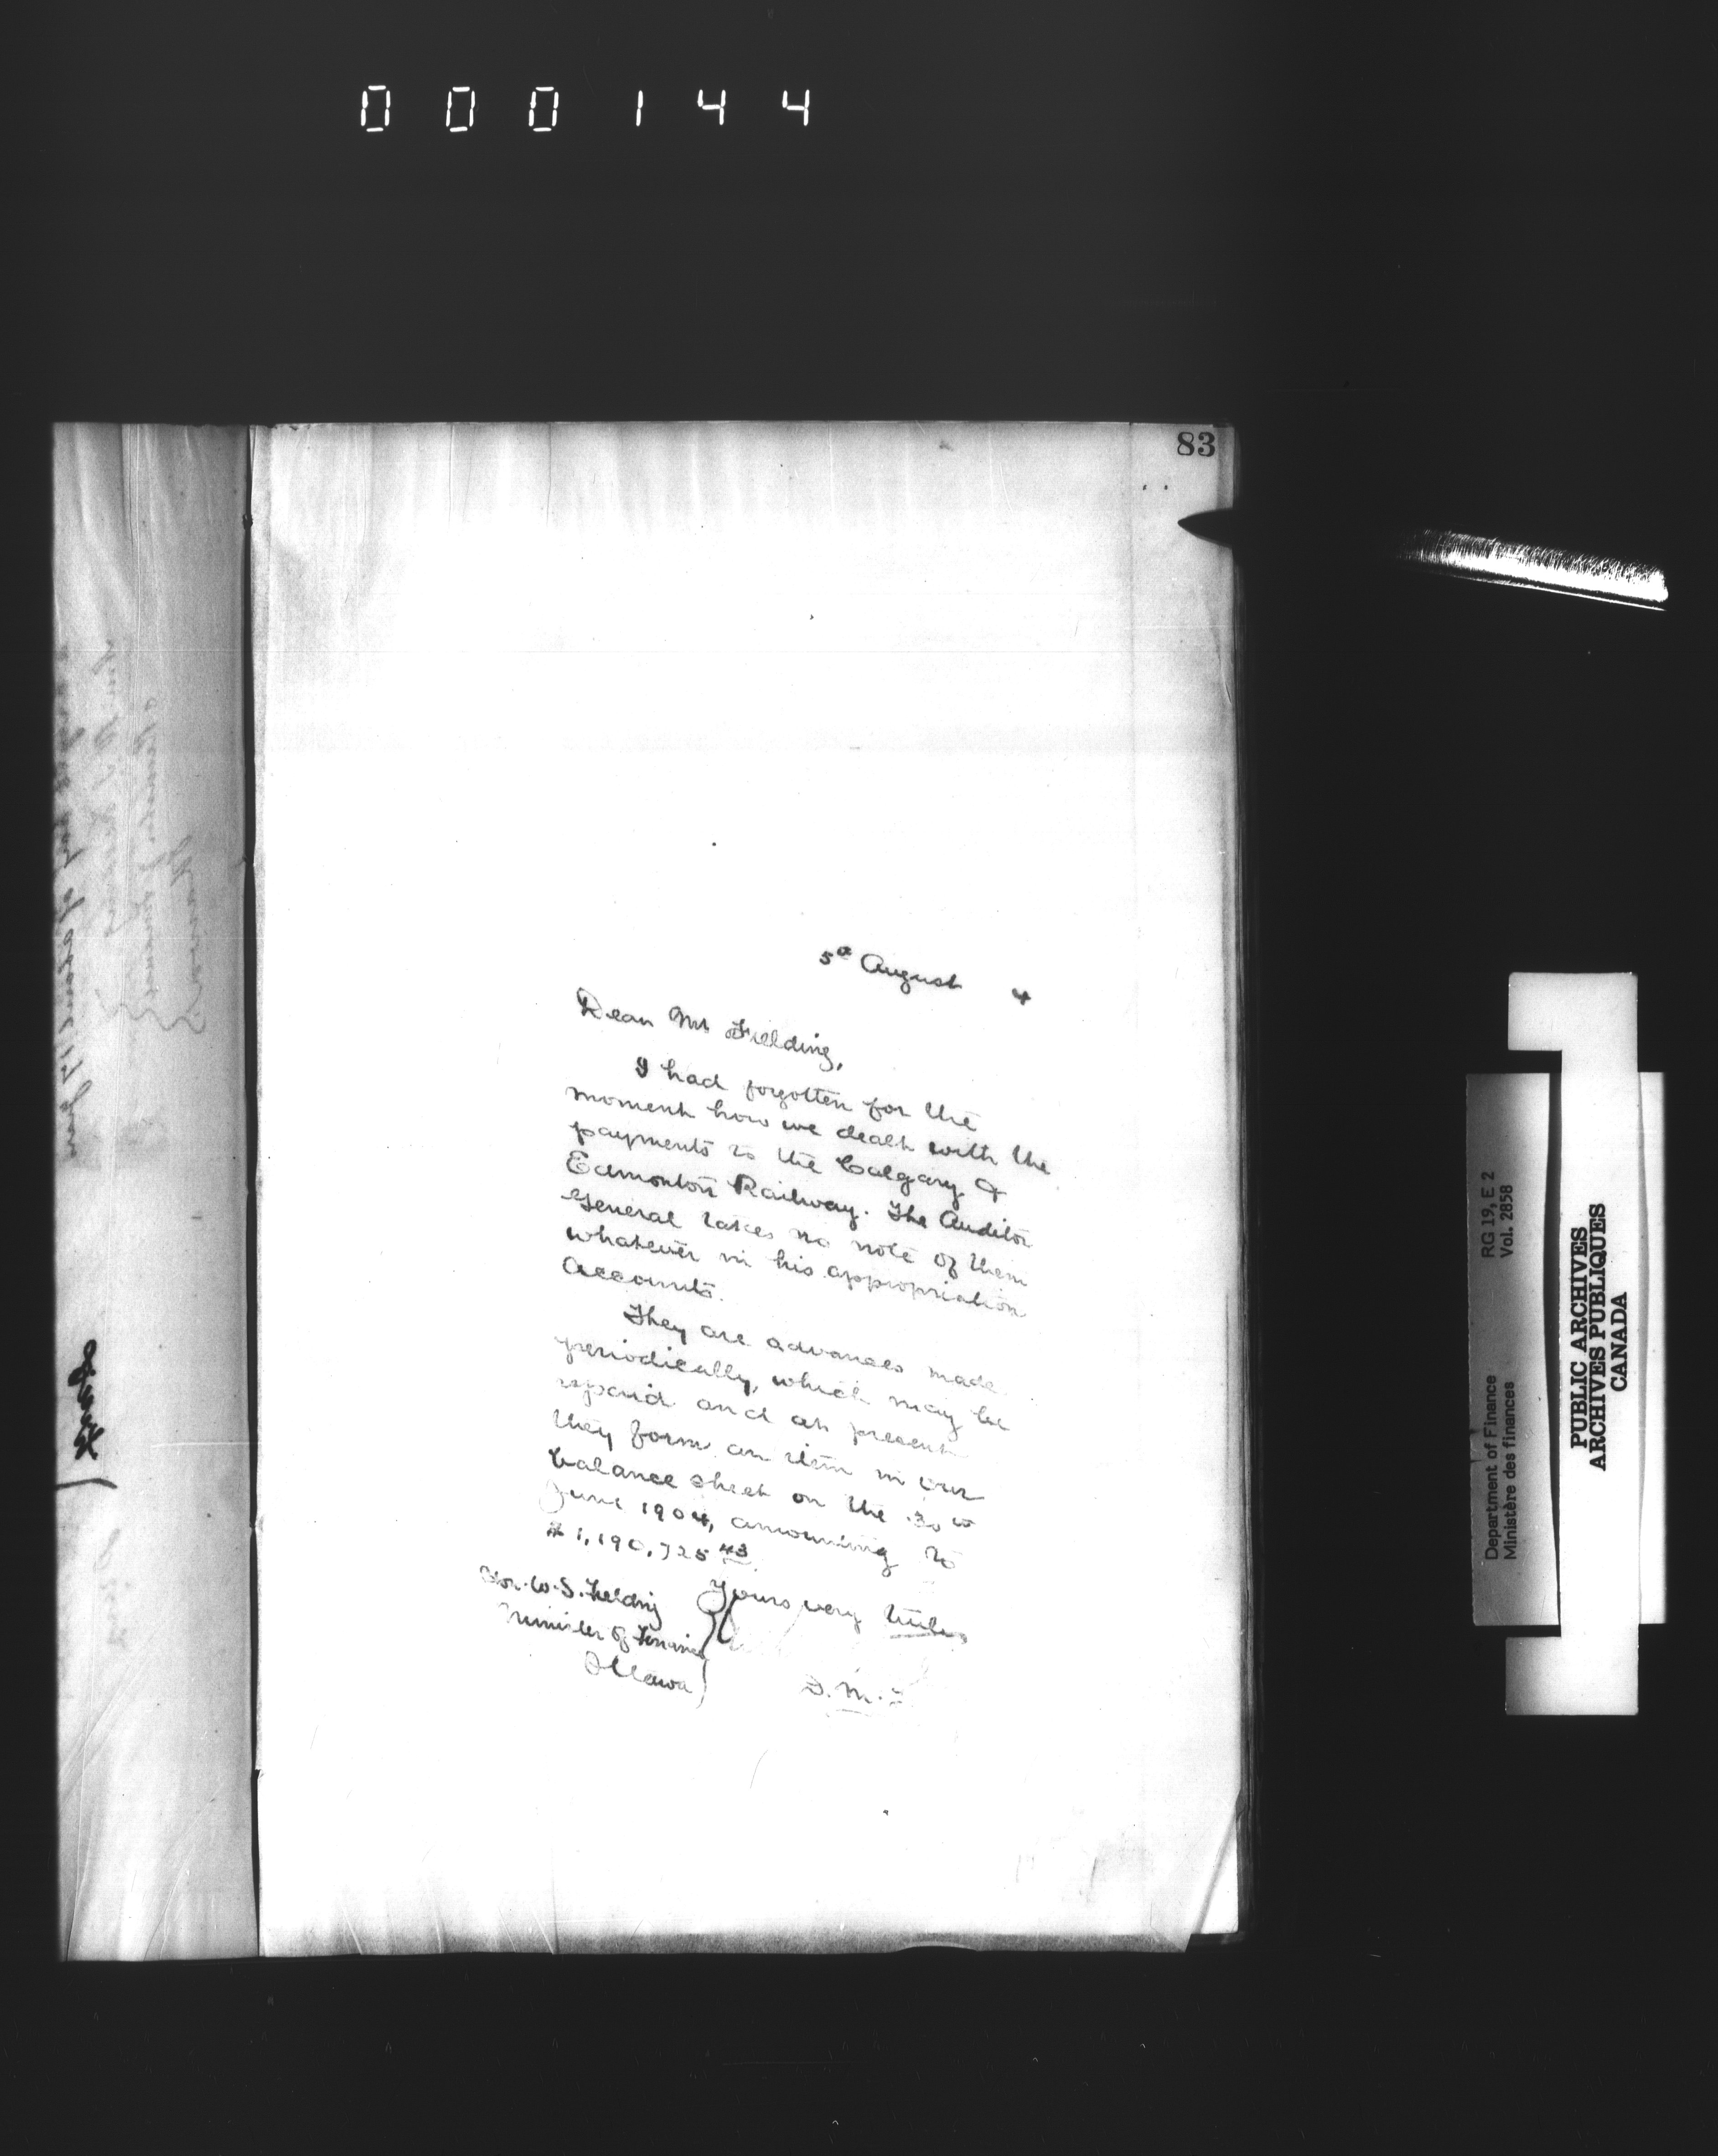 000144
83
5th August 4
Dear Mr Fielding,
I had forgotten for the
moment how we dealt with the
payments to the Calgary &
Edmonton Railway. The Auditor
General takes no note of them
whatever in his appropriation
Accounts.
They are advances made
periodically, which may be
repaid and at present
they form an item in our
balance sheet on the 30th
June 1904, amounting to
$1,190,725 43
Yours very truly,
Hon. W. S. Fielding
Minister of Finance
Ottawa
D.M.F.
Department of Finance RG 19, E 2
Ministère des finances Vol. 2858
PUBLIC ARCHIVES
ARCHIVES PUBLIQUES
CANADA